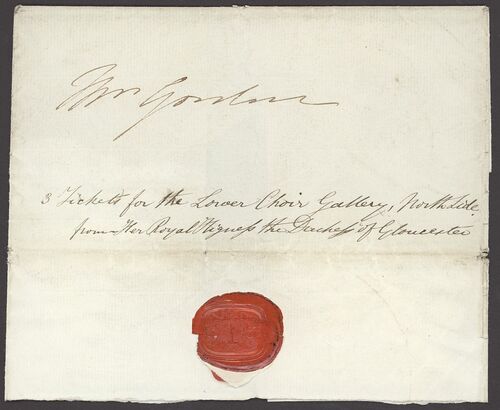 Mrs Gordon
3 Tickets for the Lower Choir Gallery, North Side
from Her Royal Higness the Duchess of Gloucester